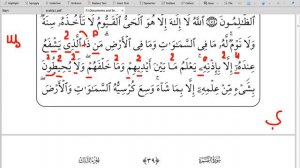 ٱلظَّٰلِمُونَ ٱللَّهُ لَآ إِلَٰهَ إِلَّا هُوَ ٱلْحَىُّ ٱلْقَيُّومُ لَا تَأْخُذُهُۥ سِنَةٌ
وَلَا نَوْمٌ لَّهُۥ مَا فِى ٱلسَّمَٰوَٰتِ وَمَا فِى ٱلْأَرْضِ مَن ذَا ٱلَّذِى يَشْفَعُ
عِندَهُۥٓ إِلَّا بِإِذْنِهِۦ يَعْلَمُ مَا بَيْنَ أَيْدِيهِمْ وَمَا خَلْفَهُمْ وَلَا يُحِيطُونَ
بِشَىْءٍ مِّنْ عِلْمِهِۦٓ إِلَّا بِمَا شَآءَ وَسِعَ كُرْسِيُّهُ ٱلسَّمَٰوَٰتِ وَٱلْأَرْضَ